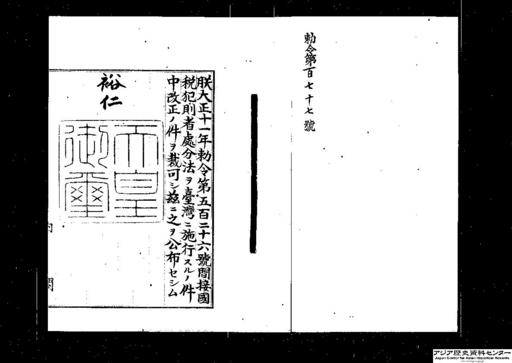 勅令第百七十七號
朕大正十一年勅令第五百二十六號間接國
税犯則者處分法ヲ臺灣ニ施行スルノ件
中改正ノ件ヲ裁可シ茲ニ之ヲ公布セシム
裕仁
天皇
御璽
アジア歴史資料センター
Japan Center for Asian Historical Records